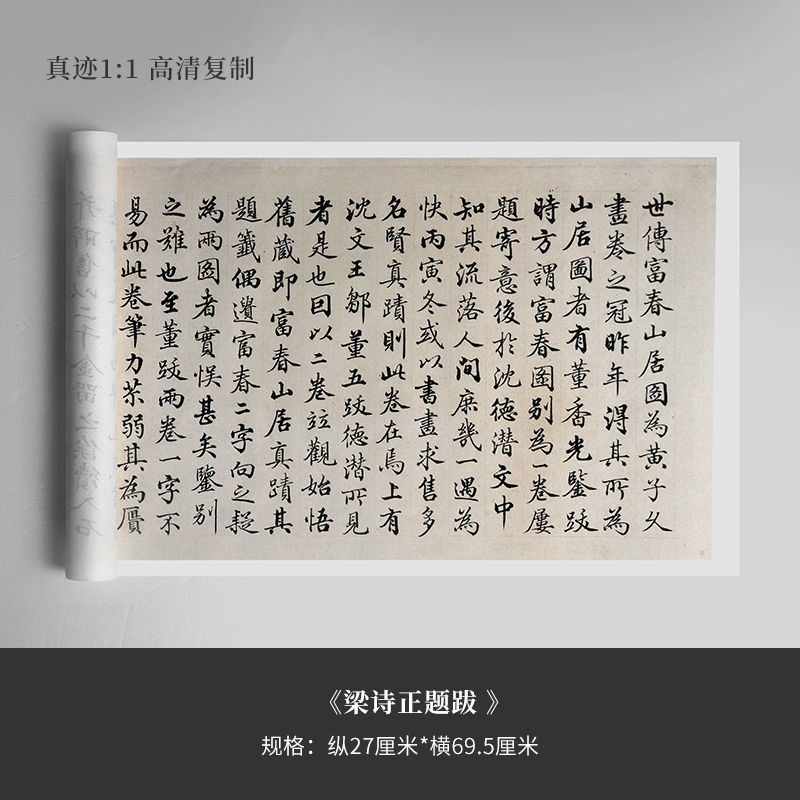 真迹1:1 高清复制
世傳富春山居圖為黃子久
畫卷之冠昨年得其所為
山居圖者有董香光鑒跋
時方謂富春圖别為一卷屢
題寄意後於沈德潛文中
知其流落人間庶幾一遇為
快丙寅冬或以書畫求售多
名賢真蹟則此卷在焉上有
沈文王鄒董五跋德潛所見
者是也因以二卷竝觀始悟
舊蔵即富春山居真蹟其
題籤偶遺富春二字向之疑
為兩圖者實悮甚矣鑒别
之難也至董跋兩卷一字不
易而此卷筆力苶弱其為贋
《梁诗正题跋 》
规格：纵27厘米*横69.5厘米